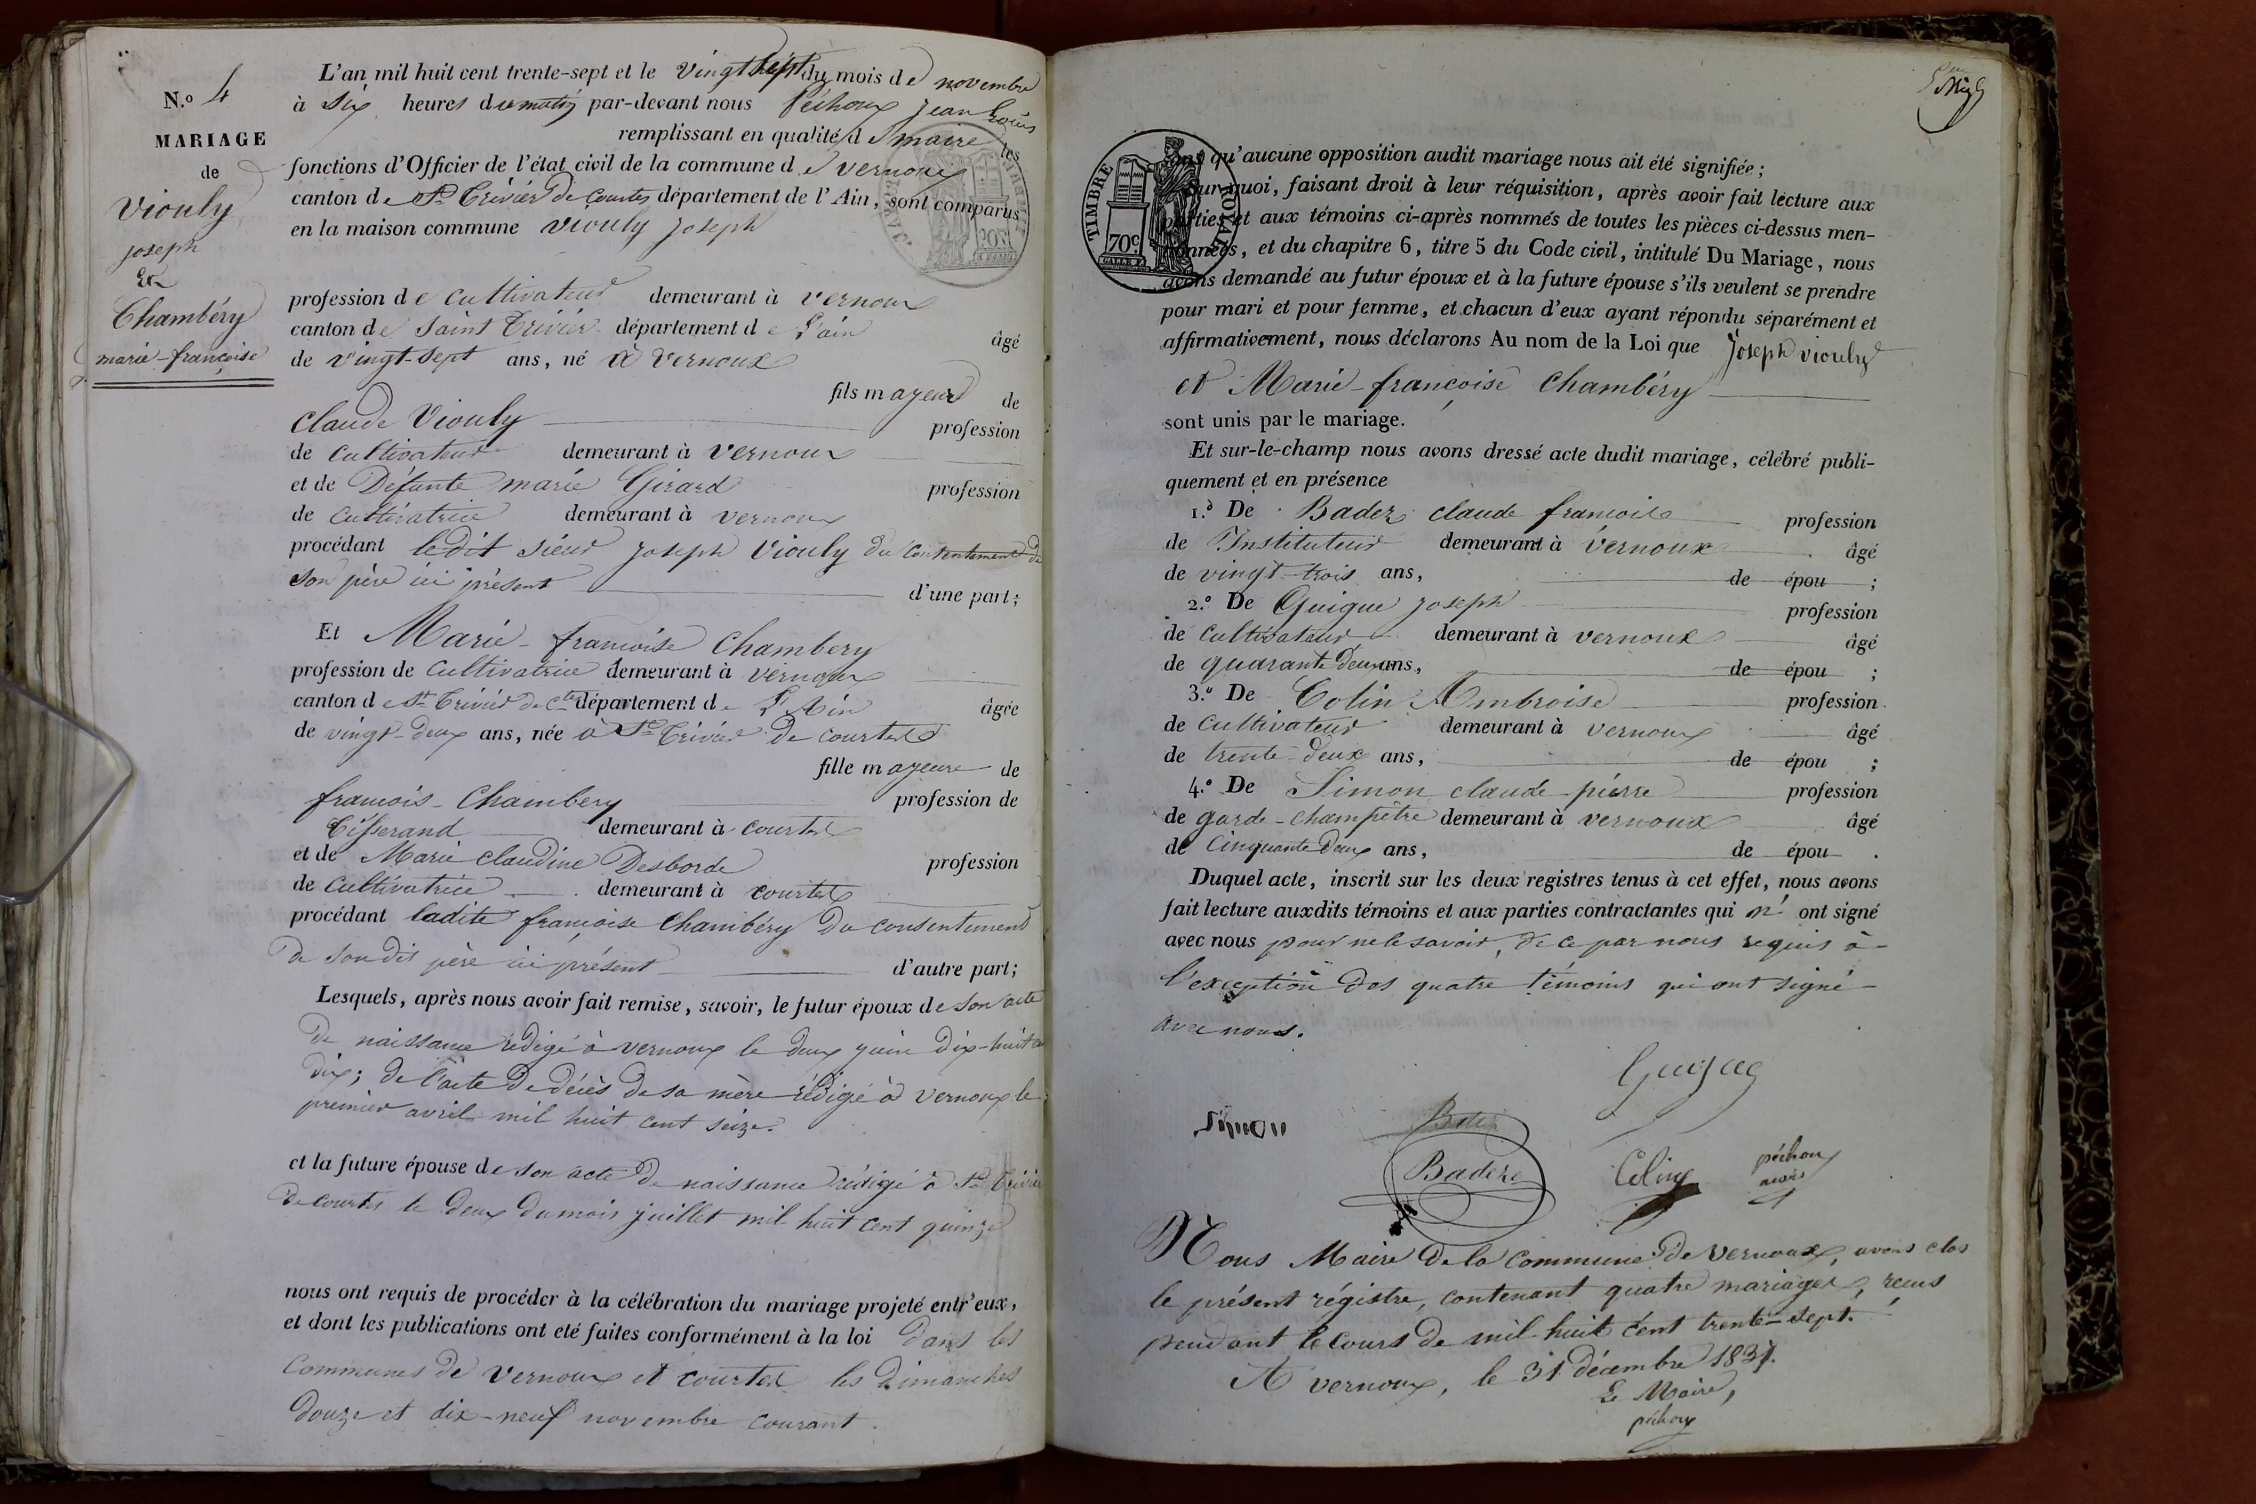 N.o 4
MARIAGE
de
Viouly
joseph
Et
Chambéry
marie-françoise
L'an mil huit cent trente-sept et le vingt sept du mois de novembre
à six heures du matin par-devant nous Péchoux jean Louis
remplissant en qualité de maire les
fonctions d'Officier de l'état civil de la commune de vernoux
canton de St Trivier de Courtes département de l'Ain, sont comparus
en la maison commune viouly joseph
profession de cultivateur demeurant à vernoux
canton de Saint Trivier département de L'ain âgé
de vingt-sept ans, né à vernoux
fils mayeur de
claude Viouly profession
de cultivateur demeurant à vernoux
et de Défunte marie Girard profession
de cultivatrice demeurant à vernoux
procédant ledit sieur joseph Viouly du consentement de
son père ici présent d'une part;
Et Marie-francoise Chambery
profession de cultivatrice demeurant à vernoux
canton de St Trivier de Ctes département de L'Ain âgée
de vingt-deux ans, née à St Trivier de courtes
fille mayeure de
francois-Chambery profession de
Tisserand demeurant à courtes
et de Marie claudine Desborde profession
de cultivatrice demeurant à courtes
procédant ladite françoise Chambéry du consentement
de son dit père ici présent d'autre part;
Lesquels, après nous avoir fait remise, savoir, le futur époux de son acte
de naissance rédigé à vernoux le deux juin dix-huit cent
dix; de l'acte de décès de sa mère rédigé à vernoux le
premier avril mil huit cent seize.
et la future épouse de son acte de naissance rédigé à St Trivier
de courtes le deux du mois juillet mil huit cent quinze
nous ont requis de procéder à la célébration du mariage projeté entr'eux,
et dont les publications ont été faites conformément à la loi dans les
communes de vernoux et courtes les dimanches
douze et dix-neuf novembre courant.
TIMBRE ROYAL
70c
sans qu'aucune opposition audit mariage nous ait été signifiée;
Sur quoi, faisant droit à leur réquisition, après avoir fait lecture aux
parties et aux témoins ci-après nommés de toutes les pièces ci-dessus men-
tionnées, et du chapitre 6, titre 5 du Code civil, intitulé Du Mariage, nous
avons demandé au futur époux et à la future épouse s'ils veulent se prendre
pour mari et pour femme, et chacun d'eux ayant répondu séparément et
affirmativement, nous déclarons Au nom de la Loi que Joseph viouly
et Marie-françoise Chambéry
sont unis par le mariage.
Et sur-le-champ nous avons dressé acte dudit mariage, célébré publi-
quement et en présence
1.o De Badez claude francois profession
de Instituteur demeurant à vernoux âgé
de vingt-trois ans, de épou ;
2.o De Guigue joseph profession
de cultivateur demeurant à vernoux âgé
de quarante deux ans, de épou ;
3.o De Colin Ambroise profession
de cultivateur demeurant à vernoux âgé
de trente-deux ans, de épou ;
4.o De Simon claude-pierre profession
de garde-champêtre demeurant à vernoux âgé
de cinquante deux ans, de épou .
Duquel acte, inscrit sur les deux registres tenus à cet effet, nous avons
fait lecture auxdits témoins et aux parties contractantes qui n' ont signé
avec nous pour ne le savoir, de ce par nous requis à
l'exception des quatre témoins qui ont signé
avec nous.
Guigue
Simon
Badez
Colin
péchoux
maire
Nous Maire de la commune de vernoux, avons clos
le présent régistre, contenant quatre mariages, reçus
pendant le cours de mil-huit cent trente-sept.
A vernoux, le 31 décembre 1837.
Le Maire,
péchoux